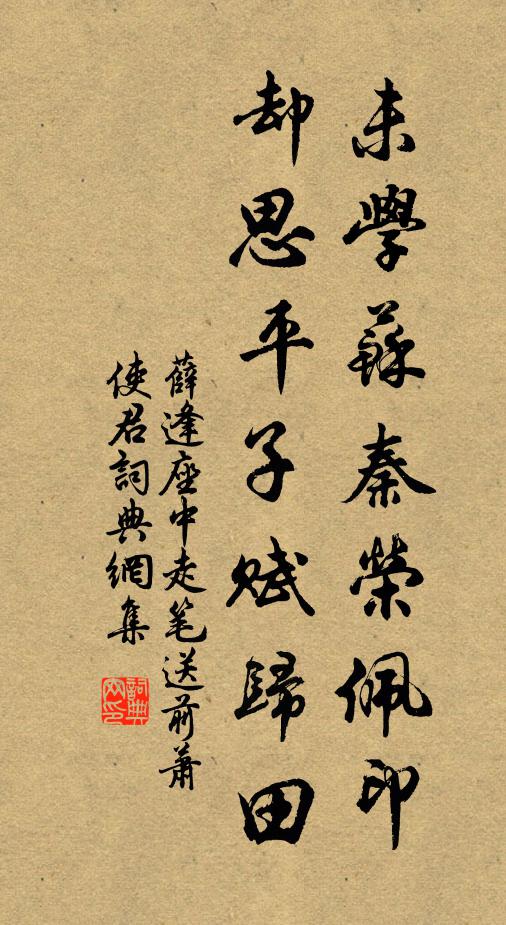 未學蘇秦榮佩印
却思平子賦歸田
薛逢座中走笔送前蕭
使君詞典網集
詞典
网印